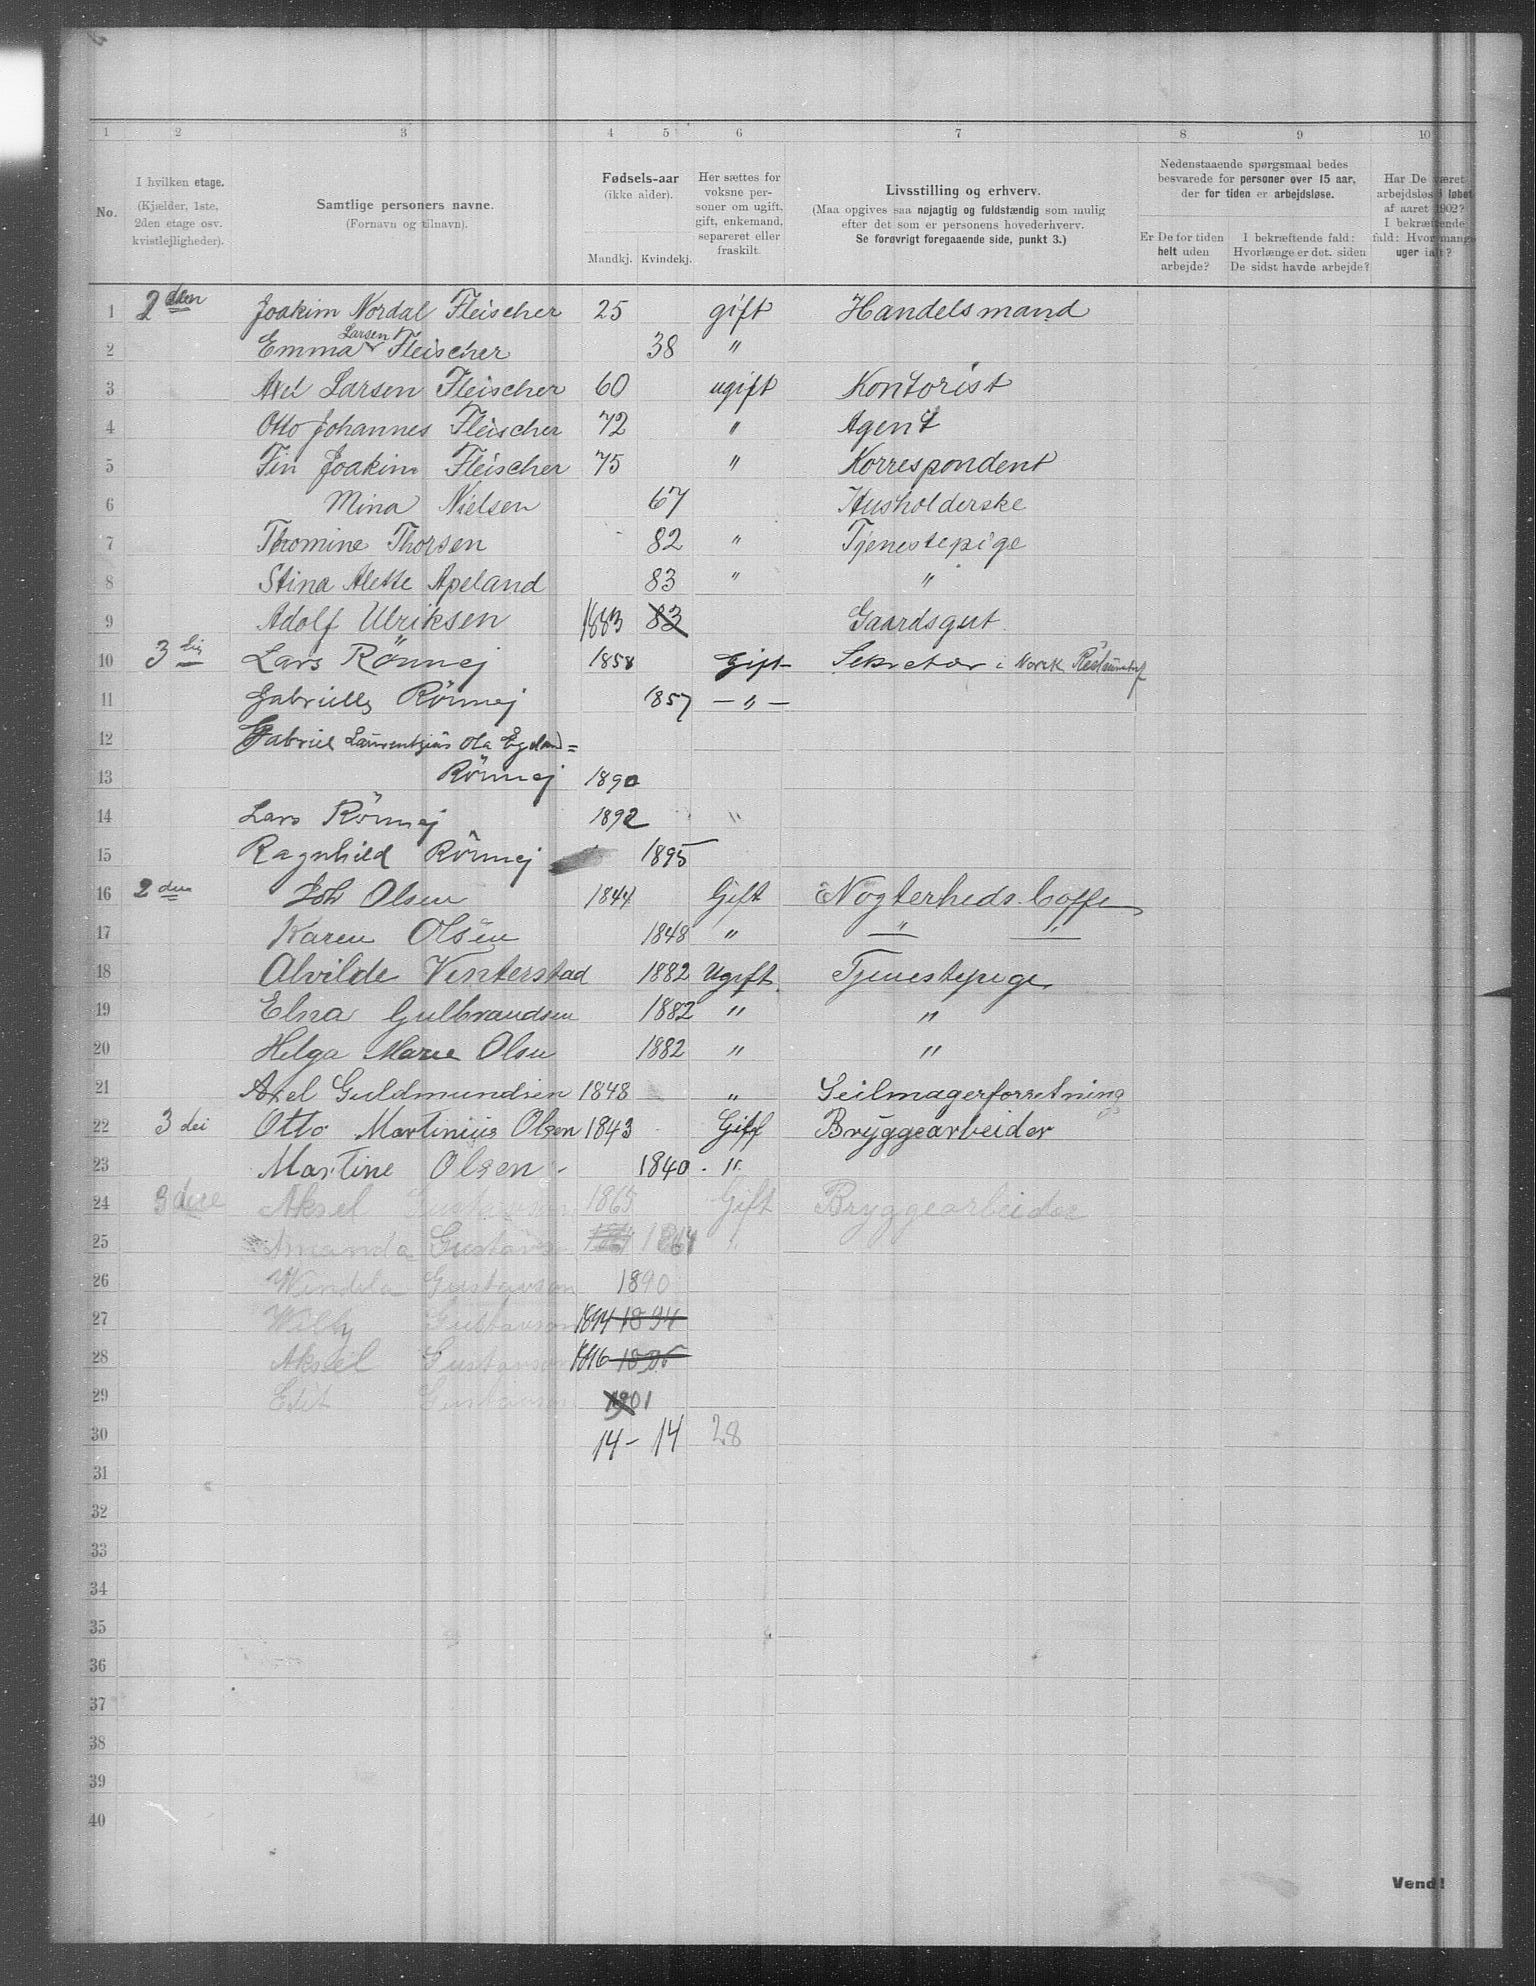 1 2 3 4 5 6 7 8 9 10
No.
I hvilken etage.
(Kjælder, 1ste,
2den etage osv.
kvistlejligheder).
Samtlige personers navne.
(Fornavn og tilnavn).
Fødsels-aar
(ikke alder).
Mandkj. Kvindekj.
Her sættes for
voksne per-
soner om ugift,
gift, enkemand,
separeret eller
fraskilt.
Livsstilling og erhverv.
(Maa opgives saa nøjagtig og fuldstændig som mulig
efter det som er personens hovederhverv.
Se forøvrigt foregaaende side, punkt 3.)
Nedenstaaende spørgsmaal bedes
besvarede for personer over 15 aar,
der for tiden er arbejdsløse.
Er De for tiden
helt uden
arbejde?
I bekræftende fald:
Hvorlænge er det. siden
De sidst havde arbejde?
Har De været
arbejdsløs i løbet
af aaret 1902?
I bekræftende
fald: Hvor mange
uger ialt?
1 2den Joakim Nordal Fleischer 25 gift Handelsmand
2 Emma Larsen Fleischer 38 "
3 Axel Larsen Fleischer 60 ugift Kontorist
4 Otto Johannes Fleischer 72 " Agent
5 Fin Joakim Fleischer 75 " Korrespondent
6 Mina Nielsen 67 Husholderske
7 Thomine Thorsen 82 " Tjenestepige
8 Stina Alette Apeland 83 " "
9 Adolf Ulriksen 1883 83 Gaardsgut
10 3 Lars Rönnej 1858 Gift Sekretær i Norsk
11 Gabrielle Rönnej 1857 - " -
12 Gabriel Laurentzius Ola Egeland=
13 Rönnej 1890
14 Lars Rönnej 1892 "
15 Ragnhild Rönnej 1895
16 2den Joh Olsen 1844 Gift Nøgterheds Caffe
17 Karen Olsen 1848 " " "
18 Alvilde Vinterstad 1882 Ugift Tjenestepige
19 Elna Gulbrandsen 1882 " "
20 Helga Marie Olsen 1882 " "
21 Axel Guldmundsen 1848 " Seilmagerforretning
22 3dei Otto Martinius Olsen 1843 Gift Bryggearbeider
23 Martine Olsen 1840 "
24 3 Aksel Gustavson 1865 Gift Bryggearbeider
25 Amanda Gustavson 1864 "
26 Wendela Gustavson 1890
27 Willy Gustavson 1894 1894
28 Aksel Gustavson 1896 1896
29 Edit Gustavson 1901
30 14 - 14 28
31
32
33
34
35
36
37
38
39
40
Vend!